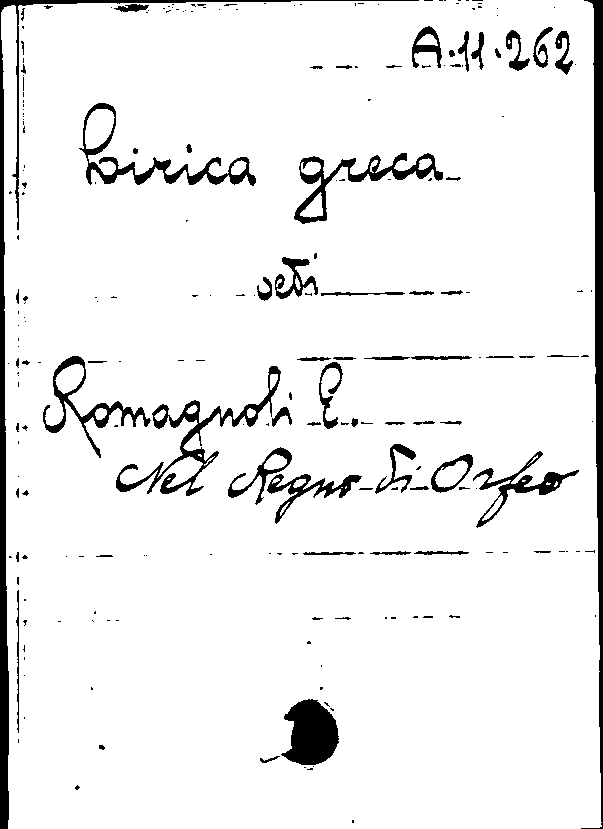 A.11.262
Lirica greca
vedi
Romagnoli E.
Nel Regno di Orfeo